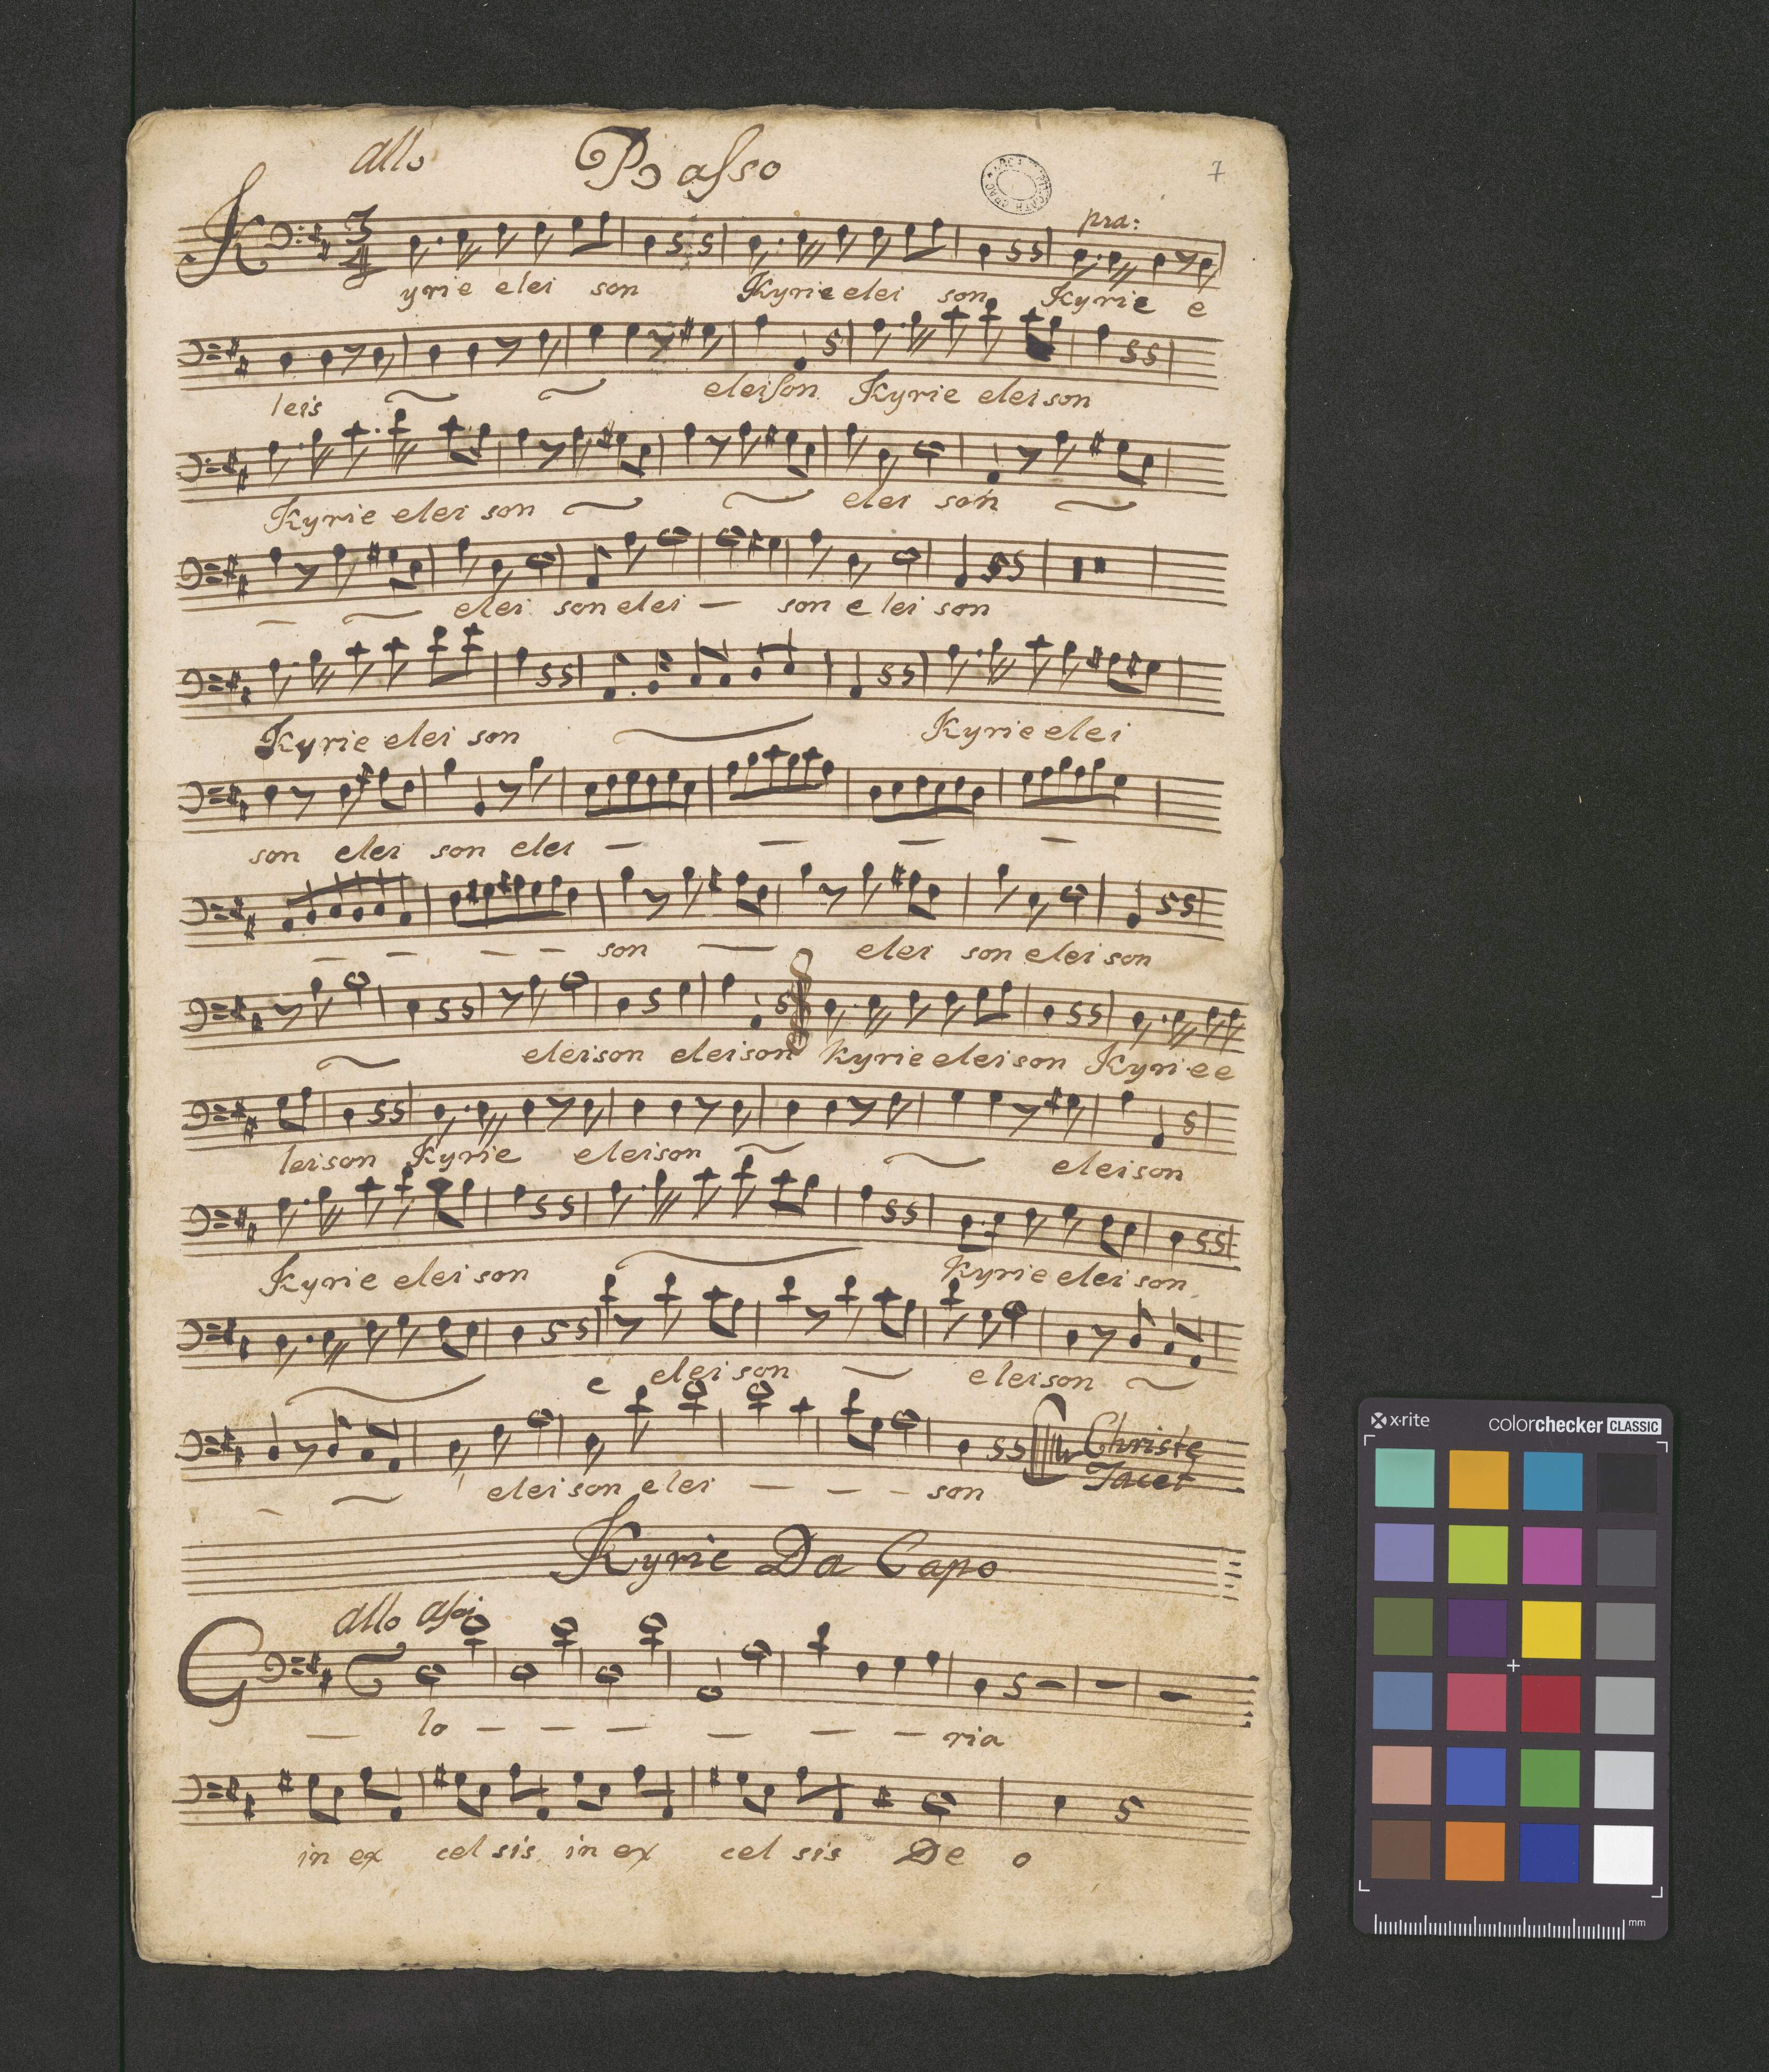 allo Basso 7
pra:
3/4
Kyrie elei son Kyrie elei son Kyrie e
leis eleison Kyrie eleison
Kyrie elei son elei son
— elei son elei — son e lei son
Kyrie elei son Kyrie elei
son elei son elei — — — —
— — — — son — elei son elei son
eleison eleison kyrie eleison Kyrie e
leison Kyrie eleison eleison
Kyrie elei son Kyrie elei son
e elei son eleison
— elei son elei — — - son Christe
Tacet
Kyrie Da Capo
allo assai
G — lo — — — — — — ria
in ex cel sis in ex cel sis De o
x-rite colorchecker CLASSIC
mm